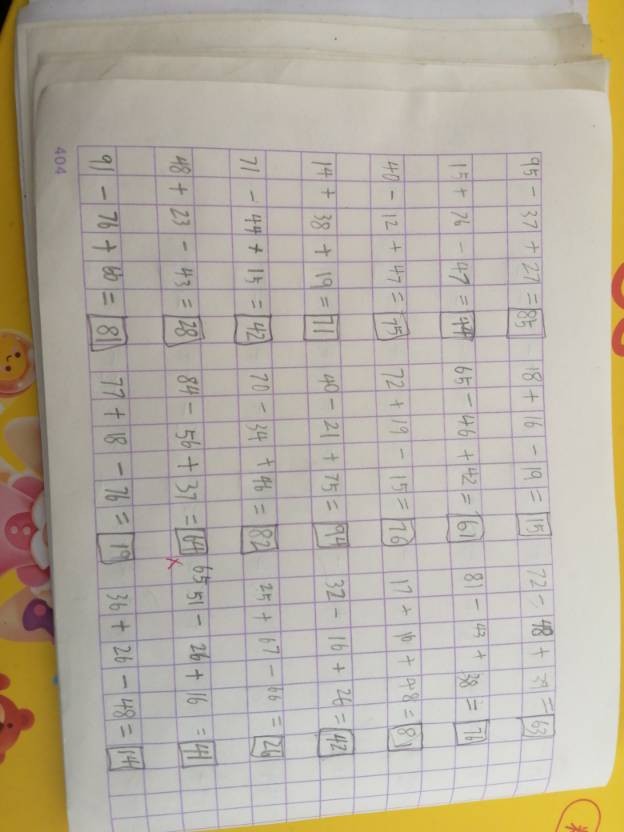 95 - 37 + 27 = 85 18 + 16 - 19 = 15 72 - 48 + 39 = 63
15 + 76 - 47 = 44 65 - 46 + 42 = 61 81 - 43 + 38 = 76
40 - 12 + 47 = 75 72 + 19 - 15 = 76 17 + 16 + 48 = 81
14 + 38 + 19 = 71 40 - 21 + 75 = 94 32 - 16 + 26 = 42
71 - 44 + 15 = 42 70 - 34 + 46 = 82 25 + 67 - 66 = 26
48 + 23 - 43 = 28 84 - 56 + 37 = 64 65 51 - 26 + 16 = 41
91 - 76 + 66 = 81 77 + 18 - 76 = 19 36 + 26 - 48 = 14
404